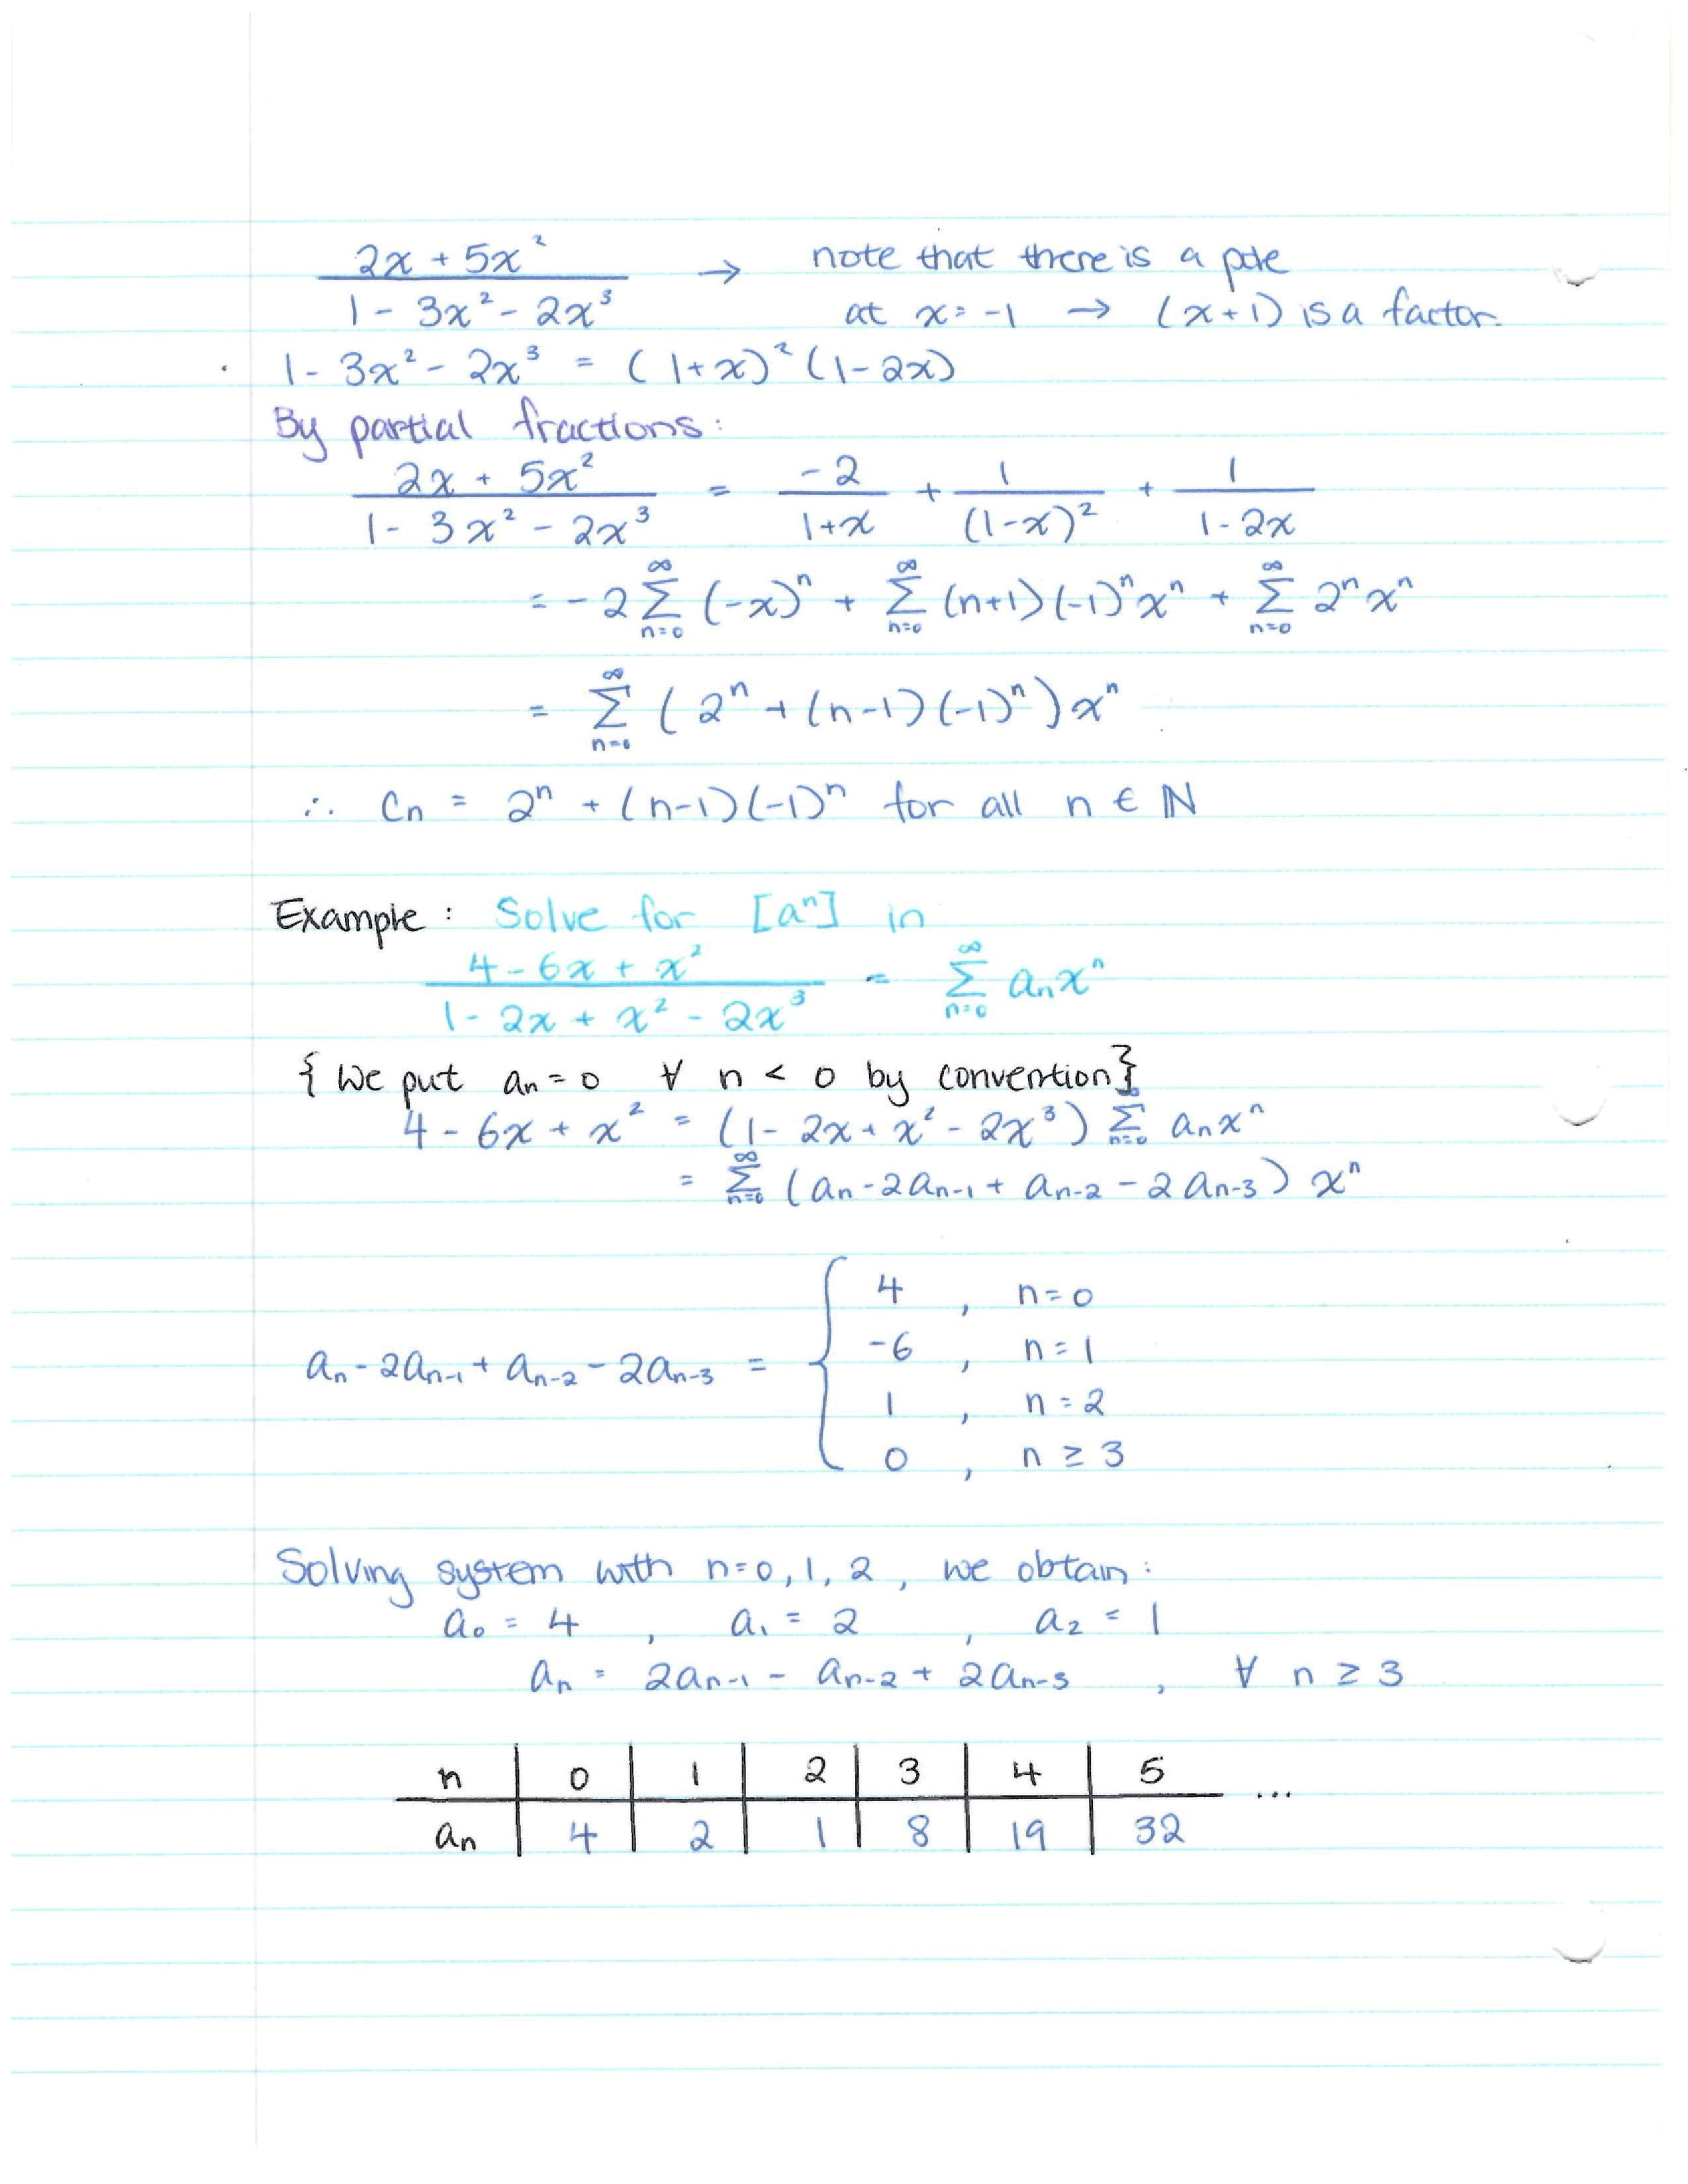 (2x + 5x²)/(1 - 3x² - 2x³) → note that there is a pole
at x = -1 → (x+1) is a factor.
1 - 3x² - 2x³ = (1+x)²(1-2x)
By partial fractions:
(2x + 5x²)/(1 - 3x² - 2x³) = -2/(1+x) + 1/(1-x)² + 1/(1-2x)
= -2 ∑_{n=0}^{∞} (-x)ⁿ + ∑_{n=0}^{∞} (n+1)(-1)ⁿxⁿ + ∑_{n=0}^{∞} 2ⁿxⁿ
= ∑_{n=0}^{∞} (2ⁿ + (n-1)(-1)ⁿ)xⁿ
∴ Cₙ = 2ⁿ + (n-1)(-1)ⁿ for all n ∈ ℕ
Example: Solve for [aⁿ] in
(4 - 6x + x²)/(1 - 2x + x² - 2x³) = ∑_{n=0}^{∞} aₙxⁿ
{ We put aₙ = 0 ∀ n < 0 by convention}
4 - 6x + x² = (1 - 2x + x² - 2x³) ∑_{n=0}^{∞} aₙxⁿ
= ∑_{n=0}^{∞} (aₙ - 2aₙ₋₁ + aₙ₋₂ - 2aₙ₋₃) xⁿ
4 , n = 0
-6 , n = 1
aₙ - 2aₙ₋₁ + aₙ₋₂ - 2aₙ₋₃ = {
1 , n = 2
0 , n ≥ 3
Solving system with n=0, 1, 2, we obtain:
a₀ = 4 , a₁ = 2 , a₂ = 1
aₙ = 2aₙ₋₁ - aₙ₋₂ + 2aₙ₋₃ , ∀ n ≥ 3
n 0 1 2 3 4 5 ...
aₙ 4 2 1 8 19 32